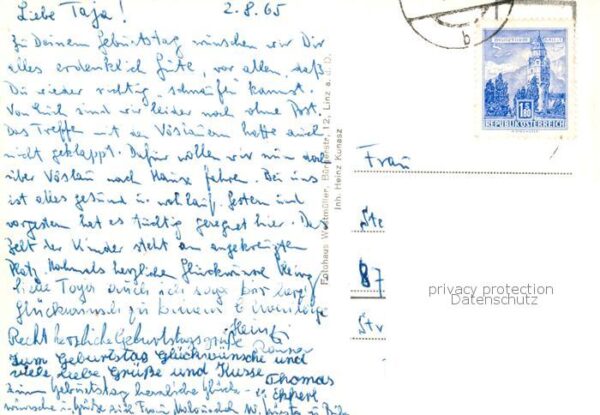 Liebe Taja! 2.8.65
Zu Deinem Geburtstag wünschen wir Dir
alles erdenklich Gute, vor allem, daß
Du wieder richtig schnaufen kannst.
Von Euch sind wir leider noch ohne Post.
Das Treffen mit den Vöslauern hatte auch
nicht geklappt. Dafür wollen wir nun
über Vöslau nach Hause fahren. Bei uns
ist alles gesund u. wohlauf. Gestern und
vorgestern hat es tüchtig geregnet hier. Das
Zelt der Kinder steht am angekreuzten
Platz. Nochmals herzlichen Glückwunsch
liebe auch ich sage
Glückwunsch zu Deinem
Recht herzliche Geburtstagsgrüße
Zum Geburtstag Glückwünsche und
viele liebe Grüße und Küsse Thomas
Zum Geburtstag herzliche Glück-
wünsche u. Grüße
Fotohaus Westmüller, Bürgerstr. 12, Linz a. d. D.
Inh. Heinz Kunasz
1.80
REPUBLIK ÖSTERREICH
b
Frau
87
privacy protection
Datenschutz